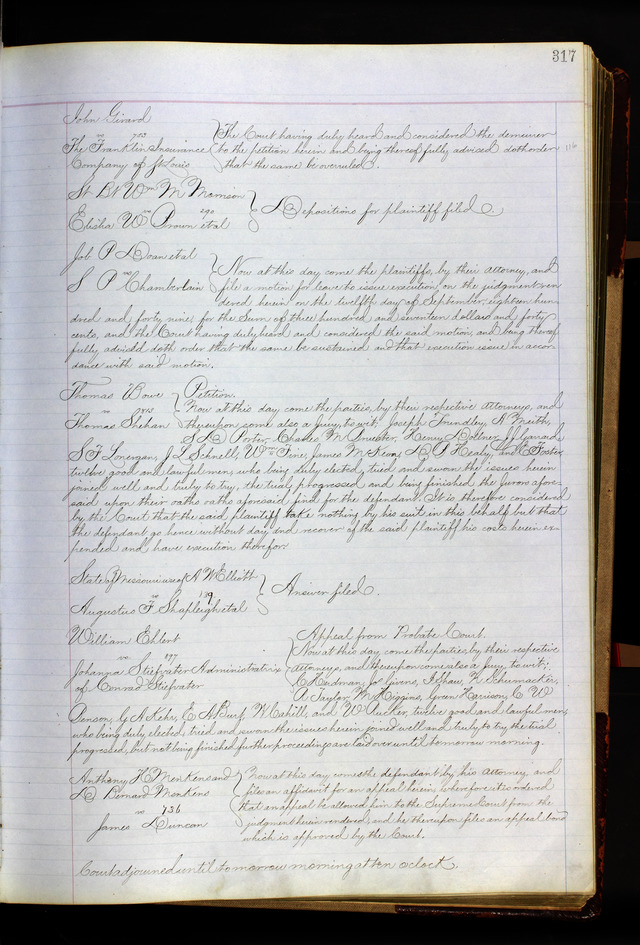 317
John Girard
vs 703
The Franklin Insurance
Company of St Louis
The Court having duly heard and considered the demurrer
to the petition herein and being thereof fully advised doth order
that the same be overruled.
116
Wm M Morrison
vs 290
Elisha W Brown et al
Depositions for plaintiff filed
Job P Doan et al
vs
S P Chamberlain
Now at this day come the plaintiffs, by their Attorney, and
file a motion for leave to issue execution on the judgment ren-
dered herein on the twelfth day of September, eighteen hun-
dred and forty nine, for the sum of three hundred and seventeen dollars and forty
cents, and the Court having duly heard and considered the said motion, and being thereof
fully advised doth order that the same be sustained and that execution issue in accor-
dance with said motion.
Thomas Bowe
vs
Thomas Shehan
Petition.
Now at this day come the parties, by their respective Attorneys, and
thereupon come also a jury, to wit: Joseph Trundley, A Meith,
Porter, Charles M Henry Dollner,
S T Lonergan, J L Schnell, Wm Fone, James McKeon, D P Healy, and E Foster
twelve good and lawful men, who being duly elected, tried and sworn the issues herein
joined well and truly to try, the trial progressed and being finished the jurors afore-
said upon their oaths aforesaid find for the defendant. It is therefore considered
by the Court that the said plaintiff take nothing by his suit in this behalf but that
the defendant go hence without day and recover of the said plaintiff his costs herein ex-
pended and have execution therefor.
State of Missouri use of A W Elliott
vs 189
Augustus F Shapleigh et al
Answer filed.
William Ehlert
vs 877
Johanna Stiefvater Administratrix
of Conrad Stiefvater
Appeal from Probate Court.
Now at this day, come the parties, by their respective
Attorneys, and thereupon come also a jury, to wit:
C Hendman, Jos Givens, I Shaw, H Schumacker,
A. Taylor, M Higgins, Green Harrison, C W
Denson, G A Kehr, E A Burf, W Cahill, and W Aucker, twelve good and lawful men,
who being duly elected, tried and sworn the issues herein joined well and truly to try, the trial
progressed, but not being finished further proceedings are laid over until tomorrow morning.
Anthony H Menkens and
D Bernard Menkens
vs 736
James Duncan
Now at this day comes the defendant by his Attorney, and
files an affidavit for an appeal herein, wherefore it is ordered
that an appeal be allowed him to the Supreme Court from the
judgment herein rendered, and he thereupon files an appeal bond
which is approved by the Court.
Court adjourned until tomorrow morning at ten o'clock.